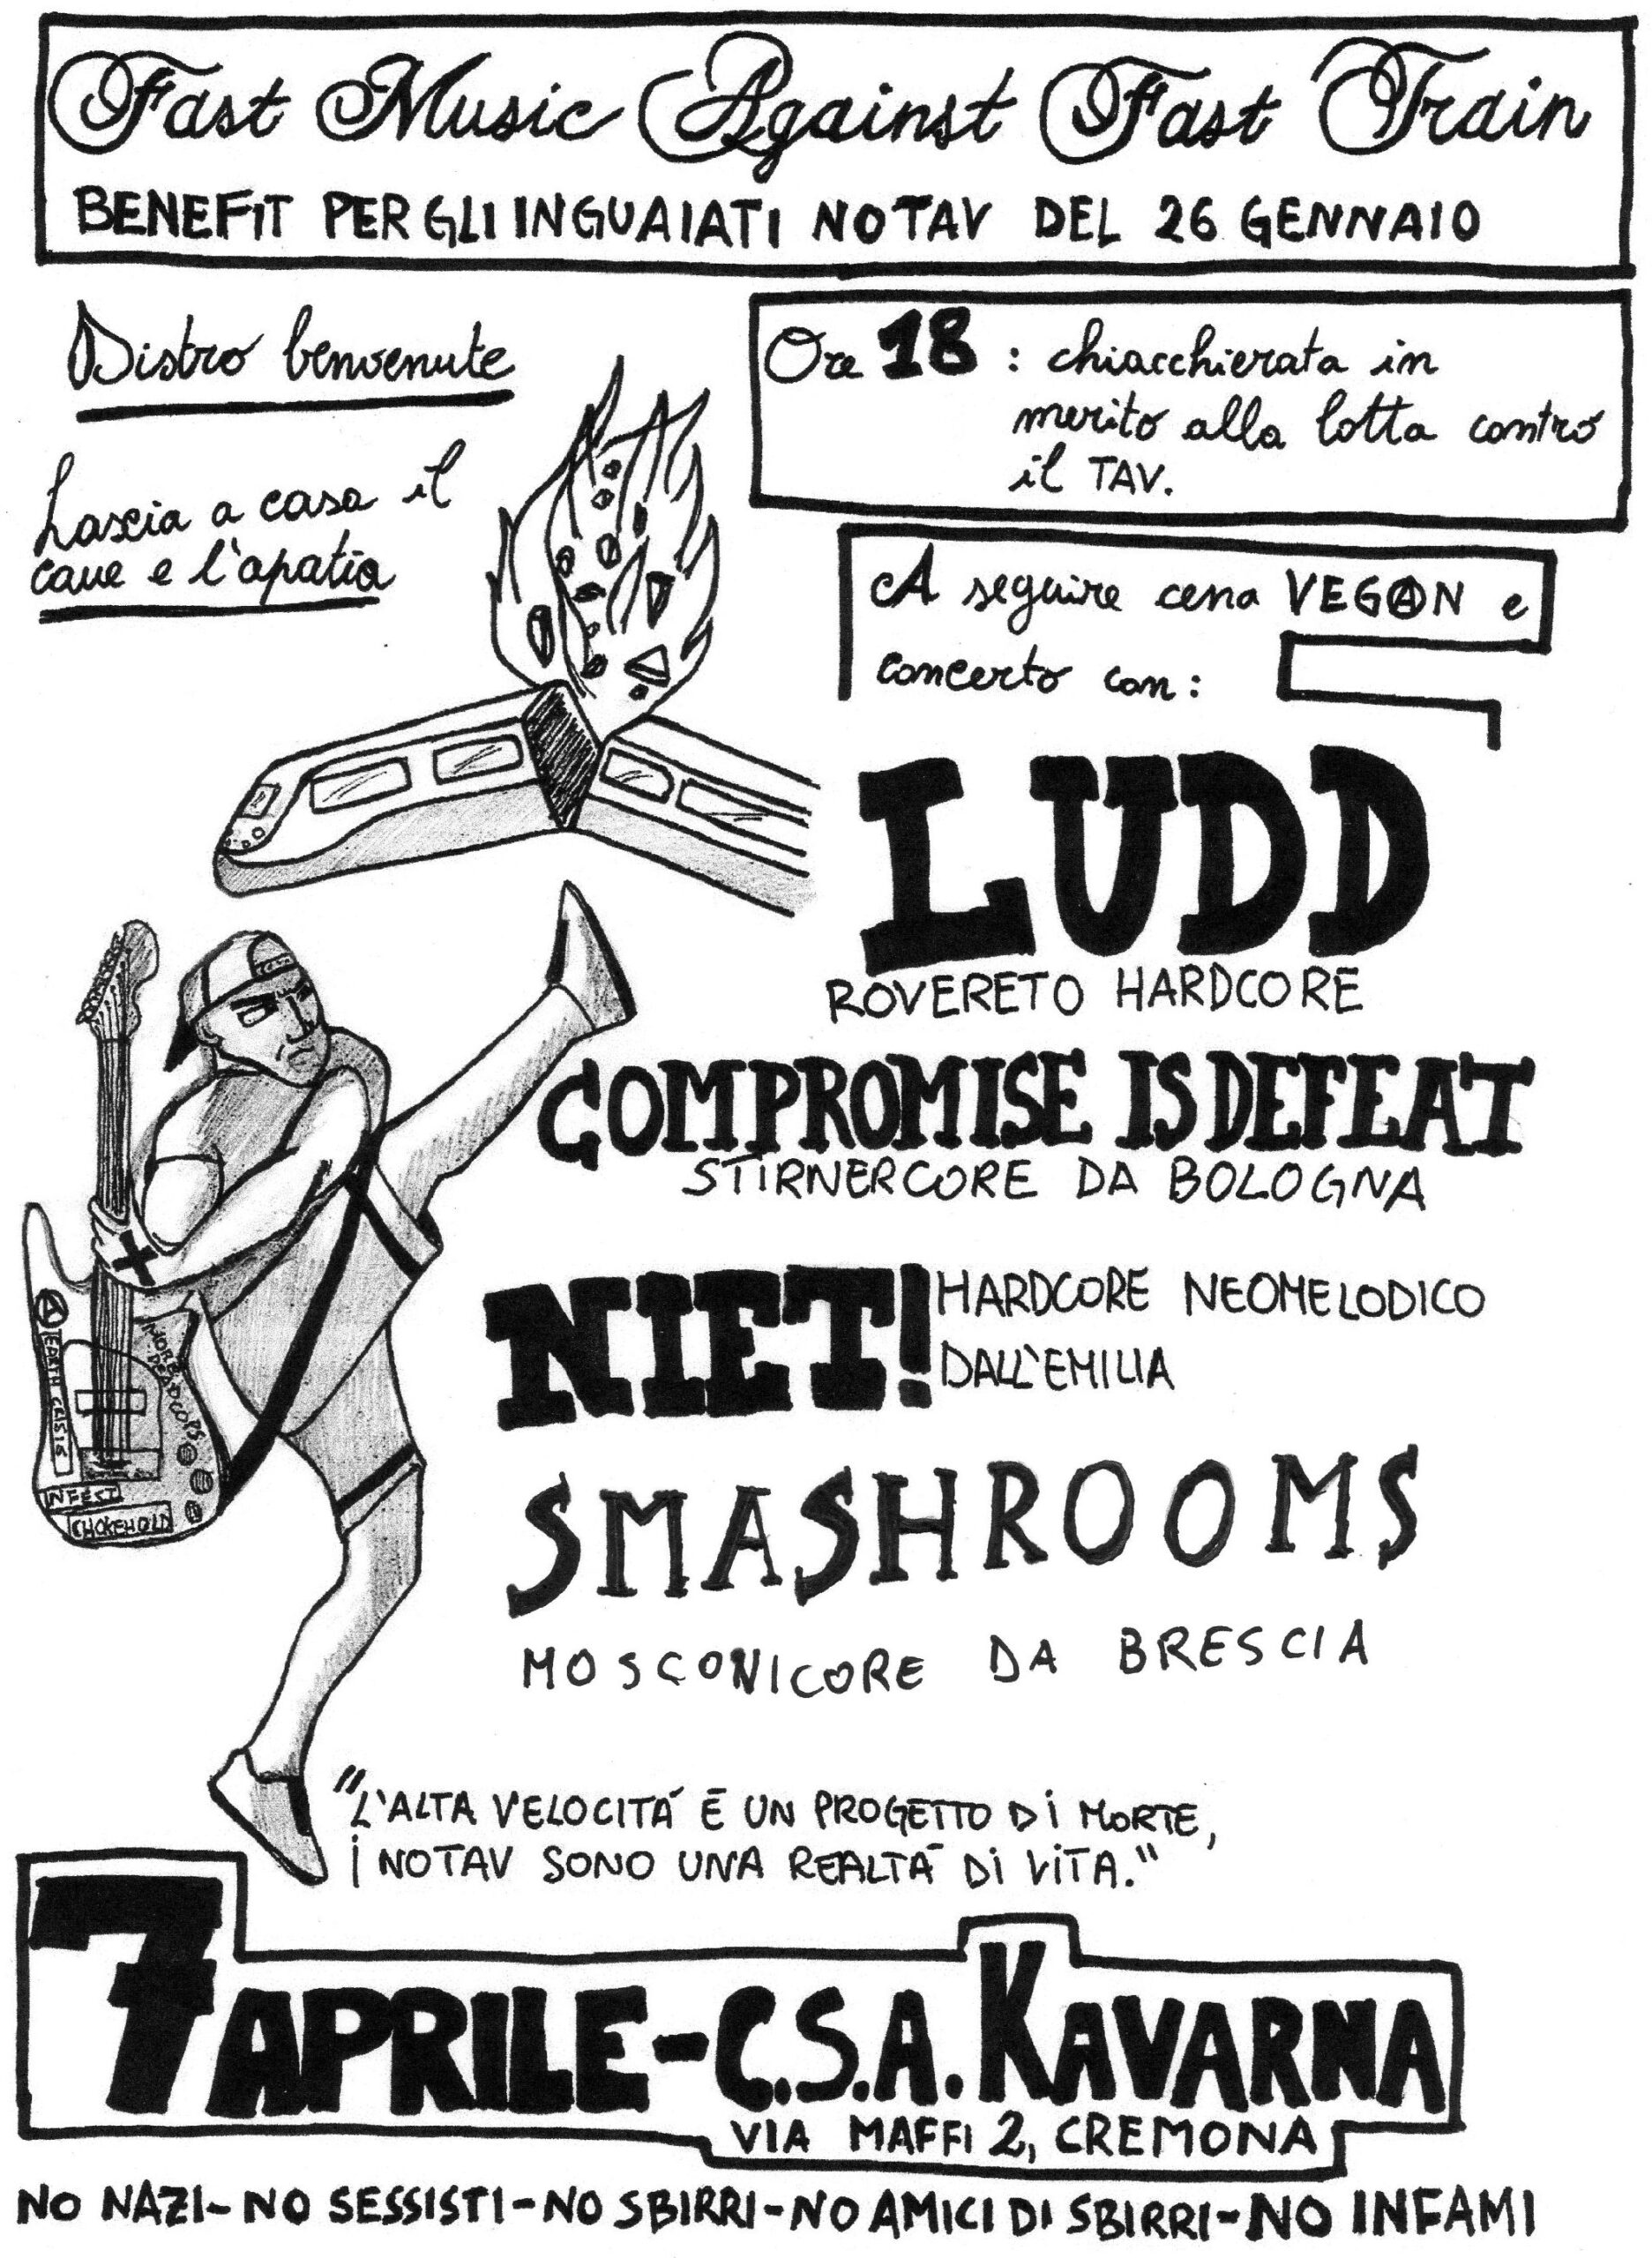 Fast Music Against Fast Train
BENEFIT PER GLI INGUAIATI NOTAV DEL 26 GENNAIO
Distro benvenute
Lascia a casa il
cane e l'apatia
Ore 18 : chiacchierata in
merito alla lotta contro
il TAV.
A seguire cena VEGAN e
concerto con:
LUDD
ROVERETO HARDCORE
COMPROMISE IS DEFEAT
STIRNERCORE DA BOLOGNA
NIET!
HARDCORE NEOMELODICO
DALL'EMILIA
SMASHROOMS
MOSCONICORE DA BRESCIA
A
EARTH CRISIS
MORE
DEAD COPS
INFEST
CHOKEHOLD
"L'ALTA VELOCITÁ É UN PROGETTO DI MORTE,
I NOTAV SONO UNA REALTÁ DI VITA."
7 APRILE-C.S.A. KAVARNA
VIA MAFFI 2, CREMONA
NO NAZI-NO SESSISTI-NO SBIRRI-NO AMICI DI SBIRRI-NO INFAMI